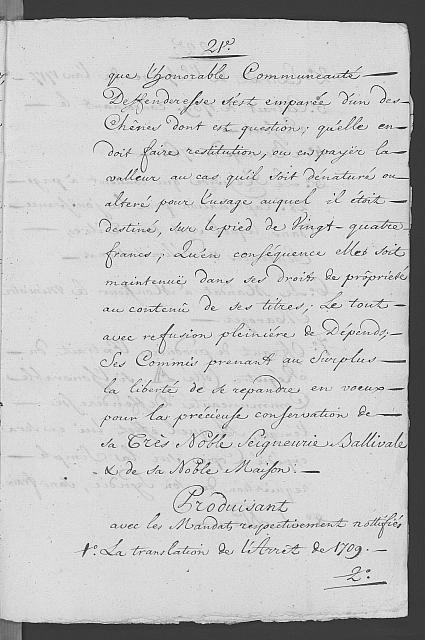 21º.
que l'Honorable Communeauté —
Deffenderesse s'est emparée d'un des —
Chênes dont est question; qu'elle en —
doit faire restitution, ou en payèr la —
valleur au cas qu'il soit dénaturé ou —
altéré pour l'usage auquel il étoit —
destiné, sur le pied de Vingt-quatre —
francs; Qu'en conséquence elles soit
maintenuë dans ses droits de propriété
au contenû de ses titres; Le tout —
avec refusion pleiniére de Dépends; —
Ses Commis prenant au Surplus —
la liberté de se repandre en voeux —
pour la précieuse conservation de —
sa Très Noble Seigneurie Ballivale
& de sa Noble Maison. —
Produisant
avec les Mandats respectivement nottifiés
1º. La translation de l'Arrêt de 1709. —
2º.